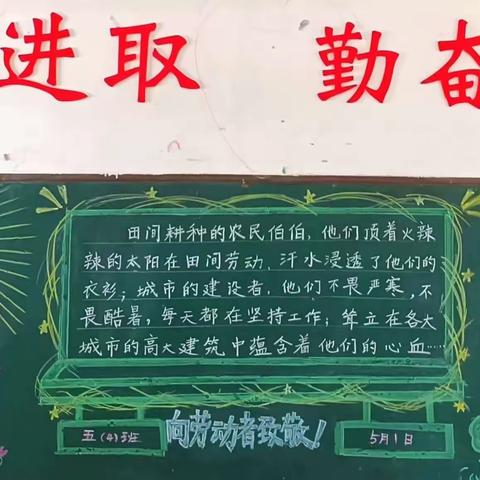 进取 勤奋
田间耕种的农民伯伯,他们顶着火辣
辣的太阳在田间劳动,汗水浸透了他们的
衣衫;城市的建设者,他们不畏严寒,不
畏酷暑,每天都在坚持工作;耸立在各大
城市的高大建筑中蕴含着他们的心血……
五(4)班
向劳动者致敬!
5月1日